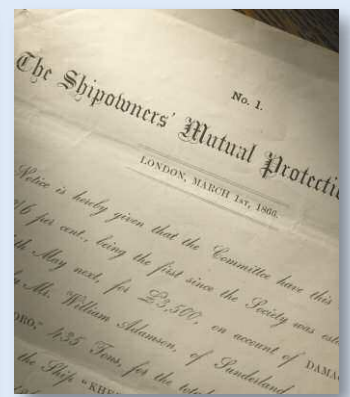 No. 1.
The Shipowners' Mutual Protectio
LONDON, MARCH 1st, 1866.
Notice is hereby given that the Committee have this
per cent., being the first since the Society was
May next, for £3,500, on account of DAMA
Mr. William Adamson, of Sunderland
ORO," 435 Tons, for the
the Ship "KHE